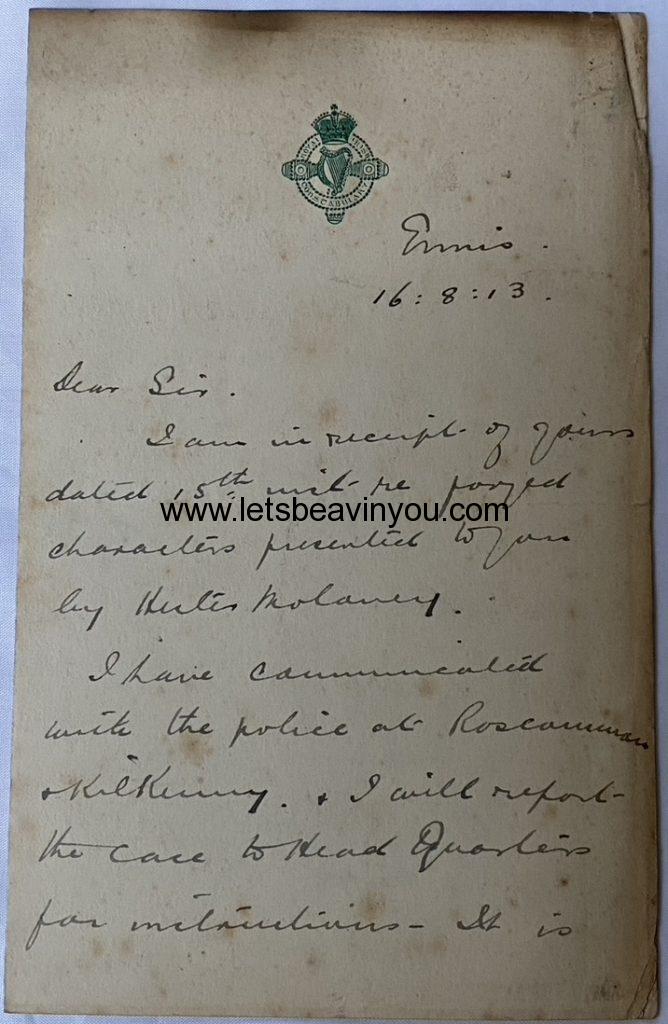 ROYAL IRISH
CONSTABULARY
Ennis.
16:8:13.
Dear Sir.
I am in receipt of yours
dated 15th inst re forged
www.letsbeavinyou.com
characters presented to you
by Molaney.
I have communicated
with the police at Roscommon
& Kilkenny. & I will report
the case to Head Quarters
for instructions - It is